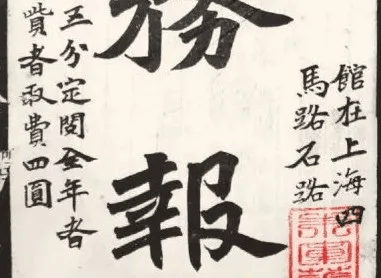 館在上海四
馬路石路
務報
五分定閱全年者
貲者取費四圓